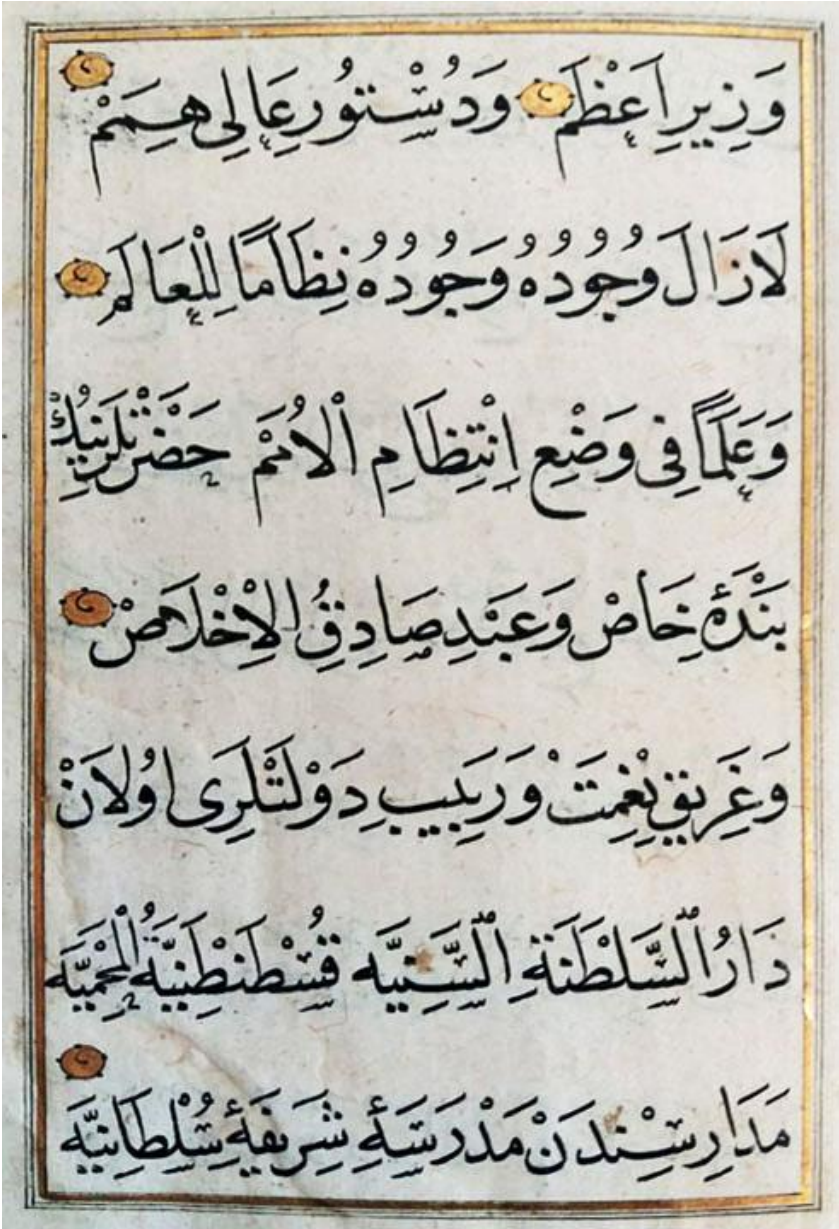 وَزِيرِ اَعْظَمْ وَدُسْتُورِ عَالِى هِمَمْ
لَازَالَ وُجُودُهُ وَجُودُهُ نِظَامًا لِلْعَالَمْ
وَعَلَمًا فِى وَضْعِ اِنْتِظَامِ الْاُمَمْ حَضْرَتْلَرِنِيكْ
بَنْدَهٔ خَاصْ وَعَبْدِ صَادِقُ الْاِخْلَاصْ
وَغَرِيقِ نِعْمَتْ وَرَبِيبِ دَوْلَتْلَرِى اوُلَانْ
دَارُ السَّلْطَنَةِ السَّنِيَّه قُسْطَنْطِنِيَّةُ الْمَحْمِيَّه
مَدَارِسِنْدَنْ مَدْرَسَهٔ شَرِيفَهٔ سُلْطَانِيَّه